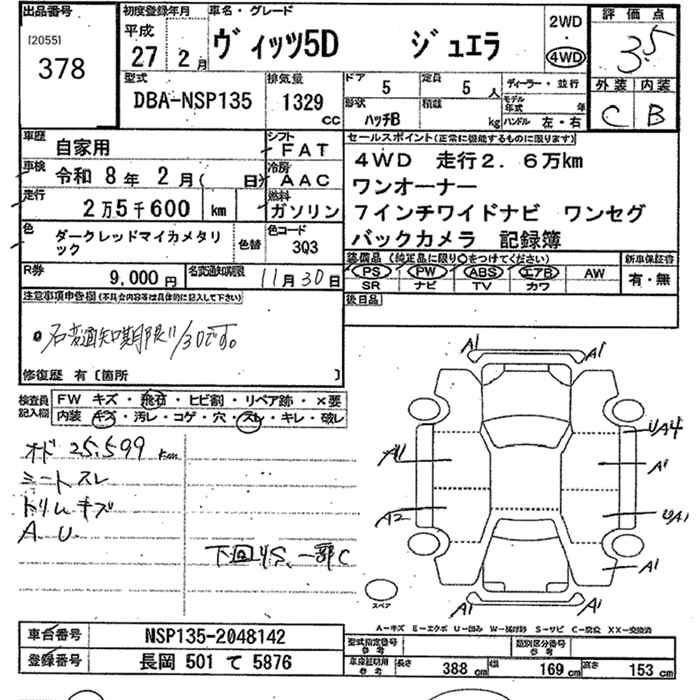 出品番号
[2055]
378
初度登録年月
平成
27年 2月
車名・グレード
ヴィッツ5D ジュエラ
2WD
・
4WD
評価点
3.5
外装 内装
C B
型式
DBA-NSP135
排気量
1329
cc
ドア
5
定員
5 人
ディーラー・並行
形状
ハッチB
積載
kg
モデル年式 年
ハンドル 左・右
車歴
自家用
シフト
FAT
車検
令和 8年 2月( 日)
冷房
AAC
走行
2万5千600 km
燃料
ガソリン
色
ダークレッドマイカメタリック
色替
色コード
3Q3
R券
9,000 円
名変通知期限
11月30日
セールスポイント(正常に機能するものに限ります)
4WD 走行2.6万km
ワンオーナー
7インチワイドナビ ワンセグ
バックカメラ 記録簿
装備品 (純正品に限り○をつけてください)
新車保証書
PS PW ABS エアB AW
SR ナビ TV カワ
有・無
後日品
注意事項申告欄(不具合内容等は具体的に記入して下さい)
名変通知期限11/30です。
修復歴 有〔箇所 〕
検査員記入欄
FW キズ・飛石・ヒビ割・リペア跡・×要
内装 キズ・汚レ・コゲ・穴・スレ・キレ・破レ
オド 25,599 km
シートスレ
トリムキズ
A.U.
下回りS、一部C
A1 A1
A1 UA4
A1
A2 UA1
A1
A1 A1
スペア
A-キズ E-エクボ U-凹み W-補修跡 S-サビ C-腐食 XX-交換済
車台番号
NSP135-2048142
登録番号
長岡 501 て 5876
型式指定番号
参考
類別区分番号
参考
車庫証明用
参考
長さ 388 cm 幅 169 cm 高さ 153 cm